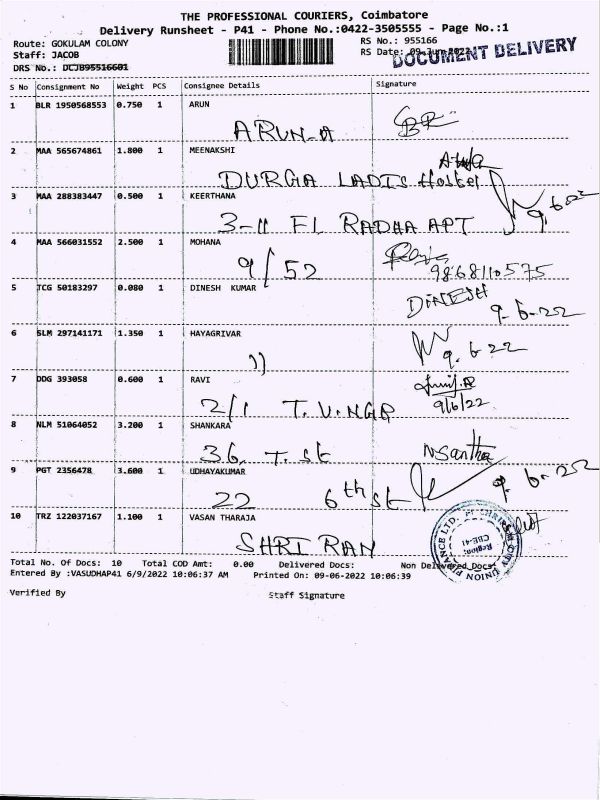 THE PROFESSIONAL COURIERS, Coimbatore
Delivery Runsheet - P41 - Phone No.:0422-3505555 - Page No.:1
Route: GOKULAM COLONY RS No.: 955166
Staff: JACOB RS Date: 09-Jun-2022
DOCUMENT DELIVERY
DRS No.: DCJB95516601
S No Consignment No Weight PCS Consignee Details Signature
1 BLR 1950568553 0.750 1 ARUN
ARUN-A
2 MAA 565674861 1.800 1 MEENAKSHI
DURGA LADIS Hostel
3 MAA 288383447 0.500 1 KEERTHANA
3-11 F1 RADHA APT 9.6.22
4 MAA 566031552 2.500 1 MOHANA
9/52 9868110575
5 TCG 50183297 0.080 1 DINESH KUMAR
DINESH 9-6-22
6 SLM 297141171 1.350 1 HAYAGRIVAR
11 9.6.22
7 DDG 393058 0.600 1 RAVI
2/1 T.V.NGR 9/6/22
8 NLM 51064052 3.200 1 SHANKARA
36. T. St N Santha
9 PGT 2356478 3.600 1 UDHAYAKUMAR
22 6th st 9.6.22
10 TRZ 122037167 1.100 1 VASAN THARAJA
SHRI RAN
Region:
CBE-41
Total No. Of Docs: 10 Total COD Amt: 0.00 Delivered Docs: Non Delivered Docs:
Entered By :VASUDHAP41 6/9/2022 10:06:37 AM Printed On: 09-06-2022 10:06:39
Verified By Staff Signature